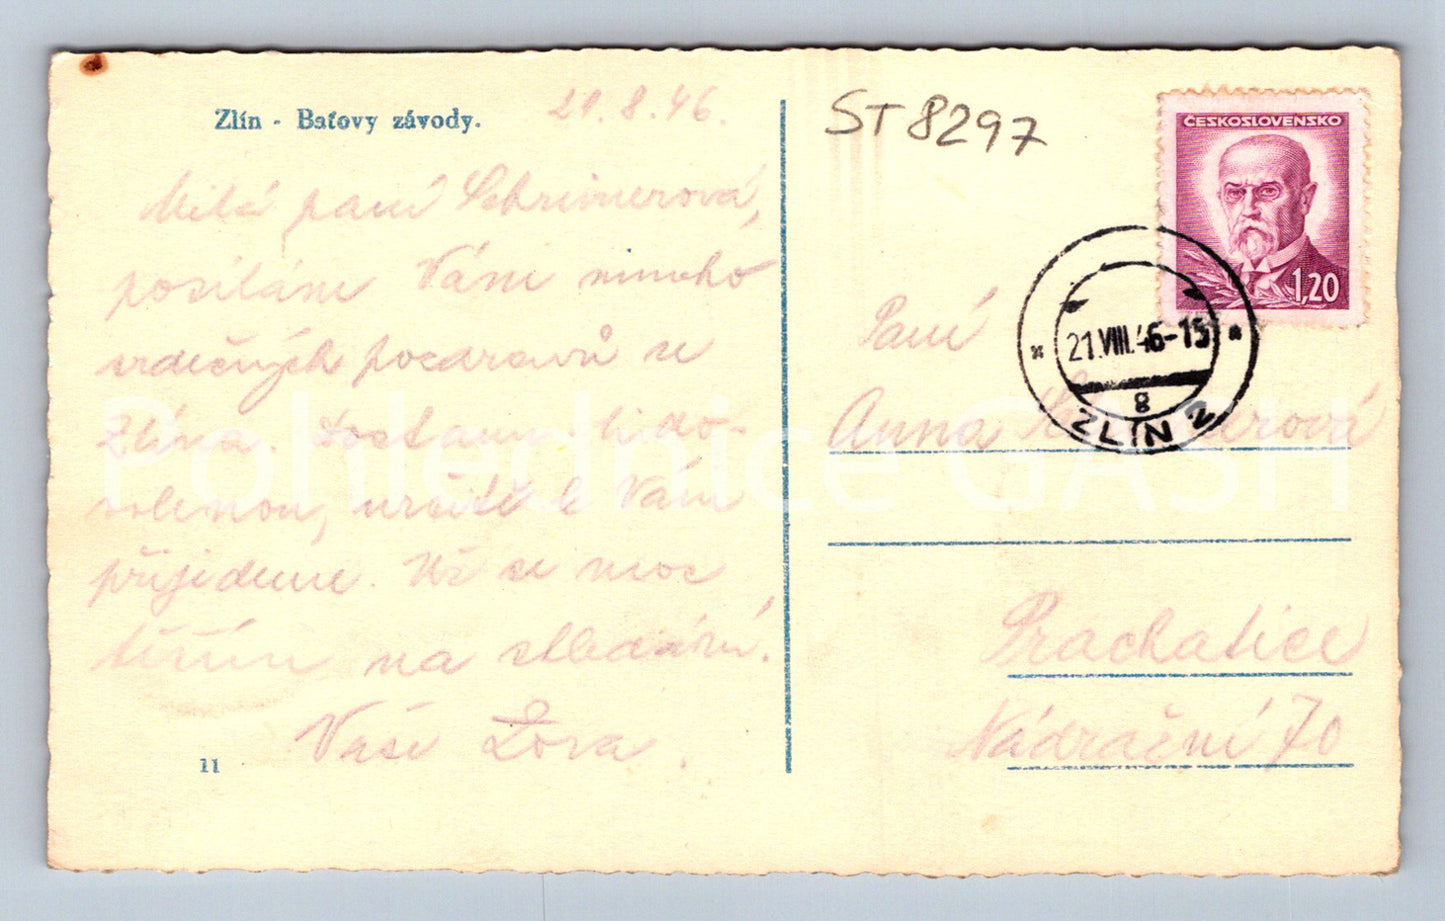 Zlín - Baťovy závody.
21.8.46.
ST 8297
ČESKOSLOVENSKO
1,20
21.VIII.46-15
g
ZLÍN 2
Milá paní Schrimerová,
posílám Vám mnoho
srdečných pozdravů ze
Zlína. Dostanu-li do-
volenou, určitě k Vám
přijedeme. Už se moc
těším na shledání.
Vaše Zora.
11
Paní
Anna
Prachatice
Nádražní 70
Pohlednice GASH